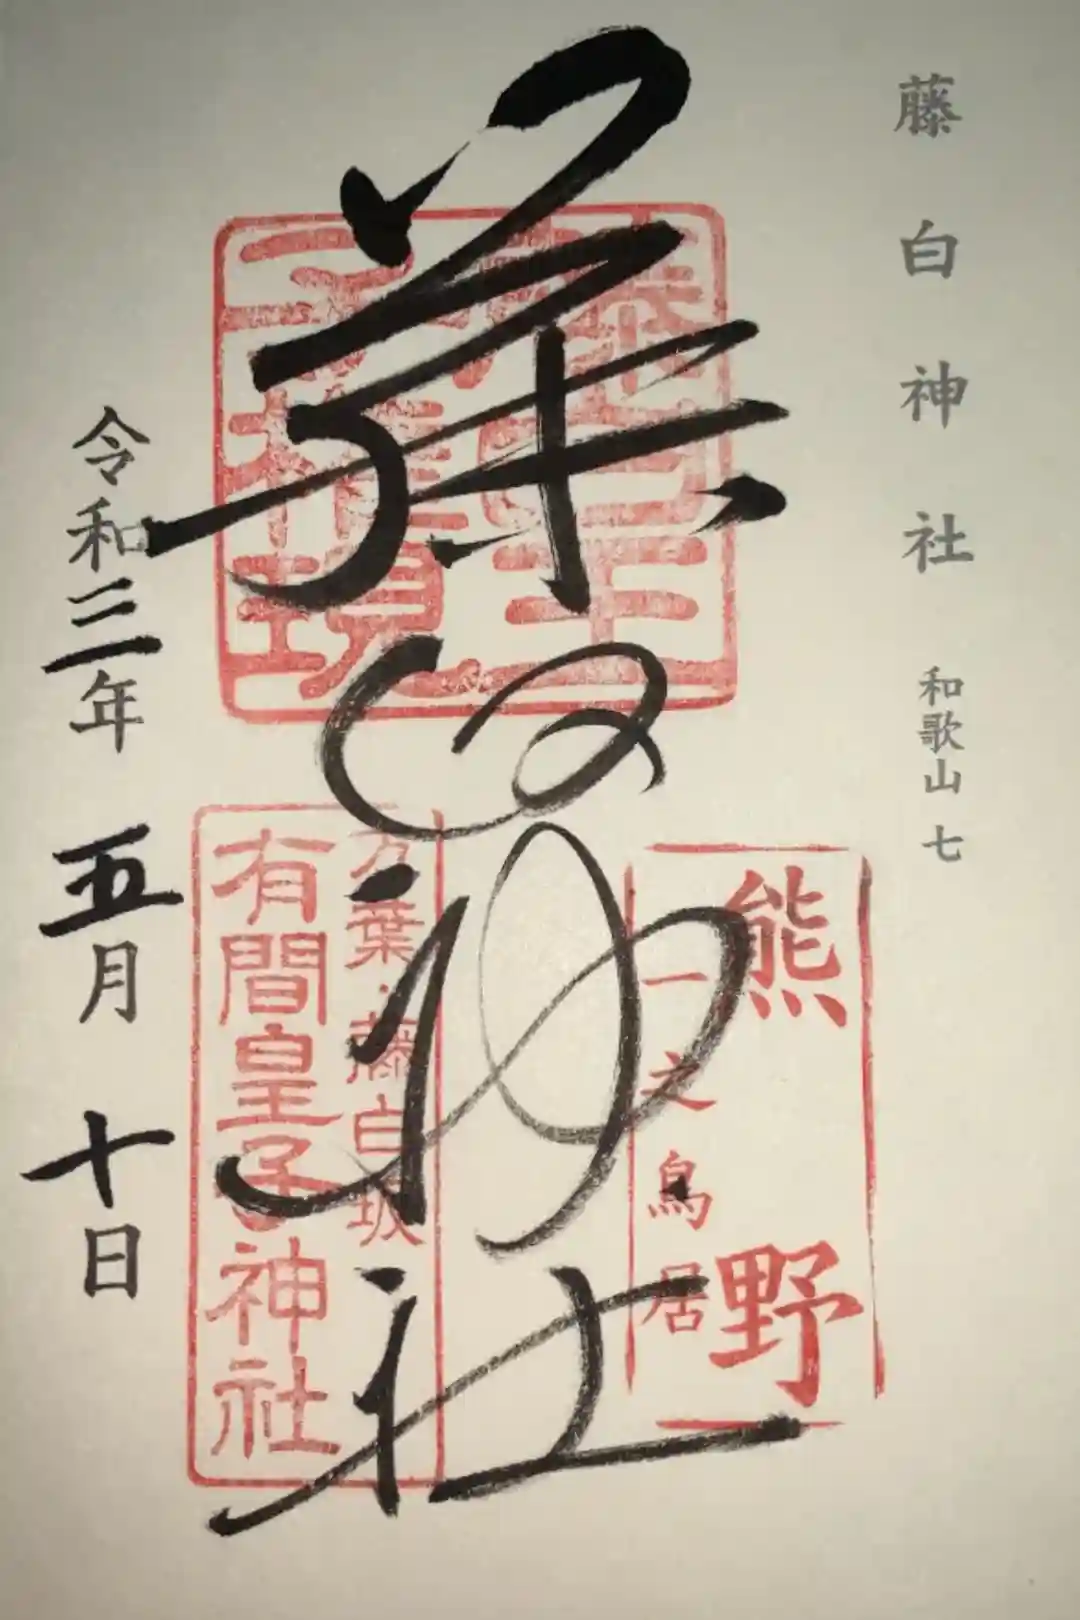 藤白神社 和歌山 七
藤白神社
藤白王子権現
熊野
一之鳥居
万葉・藤白坂
有間皇子神社
令和三年 五月 十日